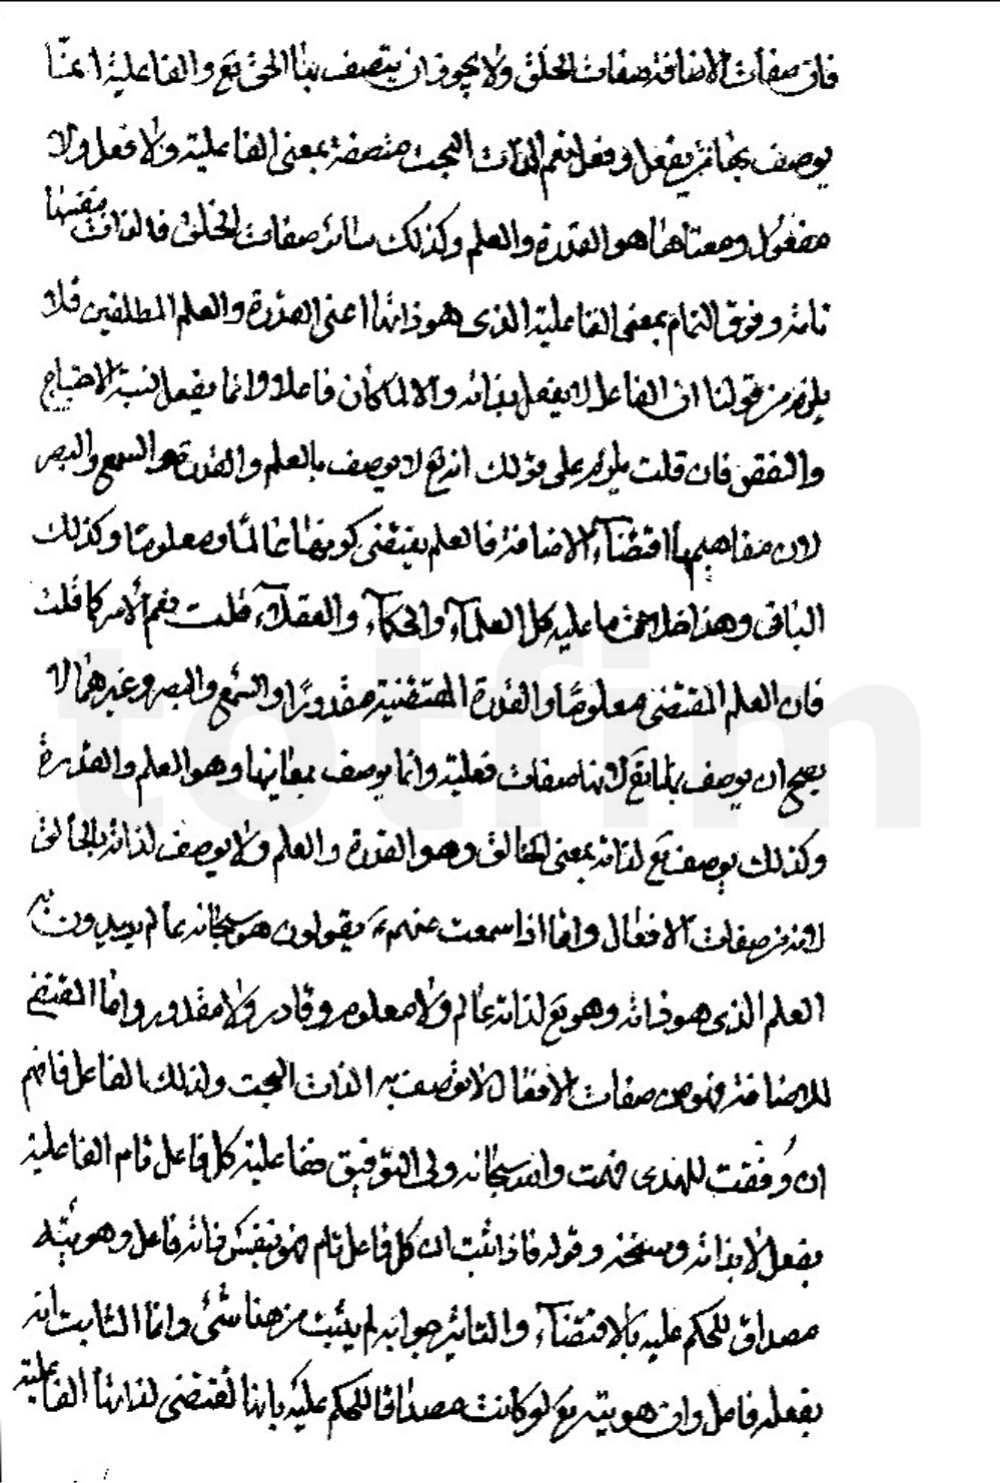 فان صفات الاضافة صفات الخلق ولا يجوز ان يتصف بها الحق تع والفاعلية انما
يوصف بها من يفعل وفعل نعم الذات البحت متصفة بمعنى الفاعلية ولا فعل ولا
مفعول ومعناها هو القدرة والعلم وكذلك سائر صفات الخلق فالذات بنفسها
تامة وفوق التمام بمعنى الفاعلية الذى هو ذاتها اعنى القدرة والعلم المطلقين فلا
يلزم من قولنا ان الفاعل لا يفعل بذاته والا لما كان فاعلا وانما يفعل لنسبة الاحتياج
والنقص فان قلت يلزم على قولك انه تع لا يوصف بالعلم والقدرة والسمع والبصر
لان مفاهيمها اقتضاء الاضافة فالعلم يقتضى كونها عالما ومعلوما وكذلك
الباقى وهذا خلاف ما عليه كل العلماء والحكماء والعقلاء قلت نعم الأمر كما قلت
فان العلم المقتضى معلوما والقدرة المقتضية مقدورا والسمع والبصر وغيرهما لا
يصح ان يوصف بها تع لانها صفات فعلية وانما يوصف بمعانيها وهو العلم والقدرة
وكذلك يوصف تع لذاته بمعنى الخالق وهو القدرة والعلم ولا يوصف لذاته بالخالق
لانه من صفات الافعال واما اذا سمعت عنهم ع يقولون هو سبحانه عالم يريدون به
العلم الذى هو ذاته وهو تع لذاته عالم ولا معلوم وقادر ولا مقدور واما المقتضى
للاضافة فهو من صفات الافعال لا توصف به الذات البحت ولذلك الفاعل فافهم
ان وُفقت للهدى فهمت والله سبحانه ولى التوفيق ففاعلية كل فاعل تام الفاعلية
بفعله لا بذاته وسنخه وقوله فاذا ثبت ان كل فاعل تام فهو بنفس ذاته فاعل وهويته
مصداق للحكم عليه بالاقتضاء والتاثير جوابه لم يثبت من هذا شئ وانما الثابت انه
بفعله فاعل وان هويته تع لو كانت مصداقا للحكم عليه بانها تقتضى لذاتها الفاعلية